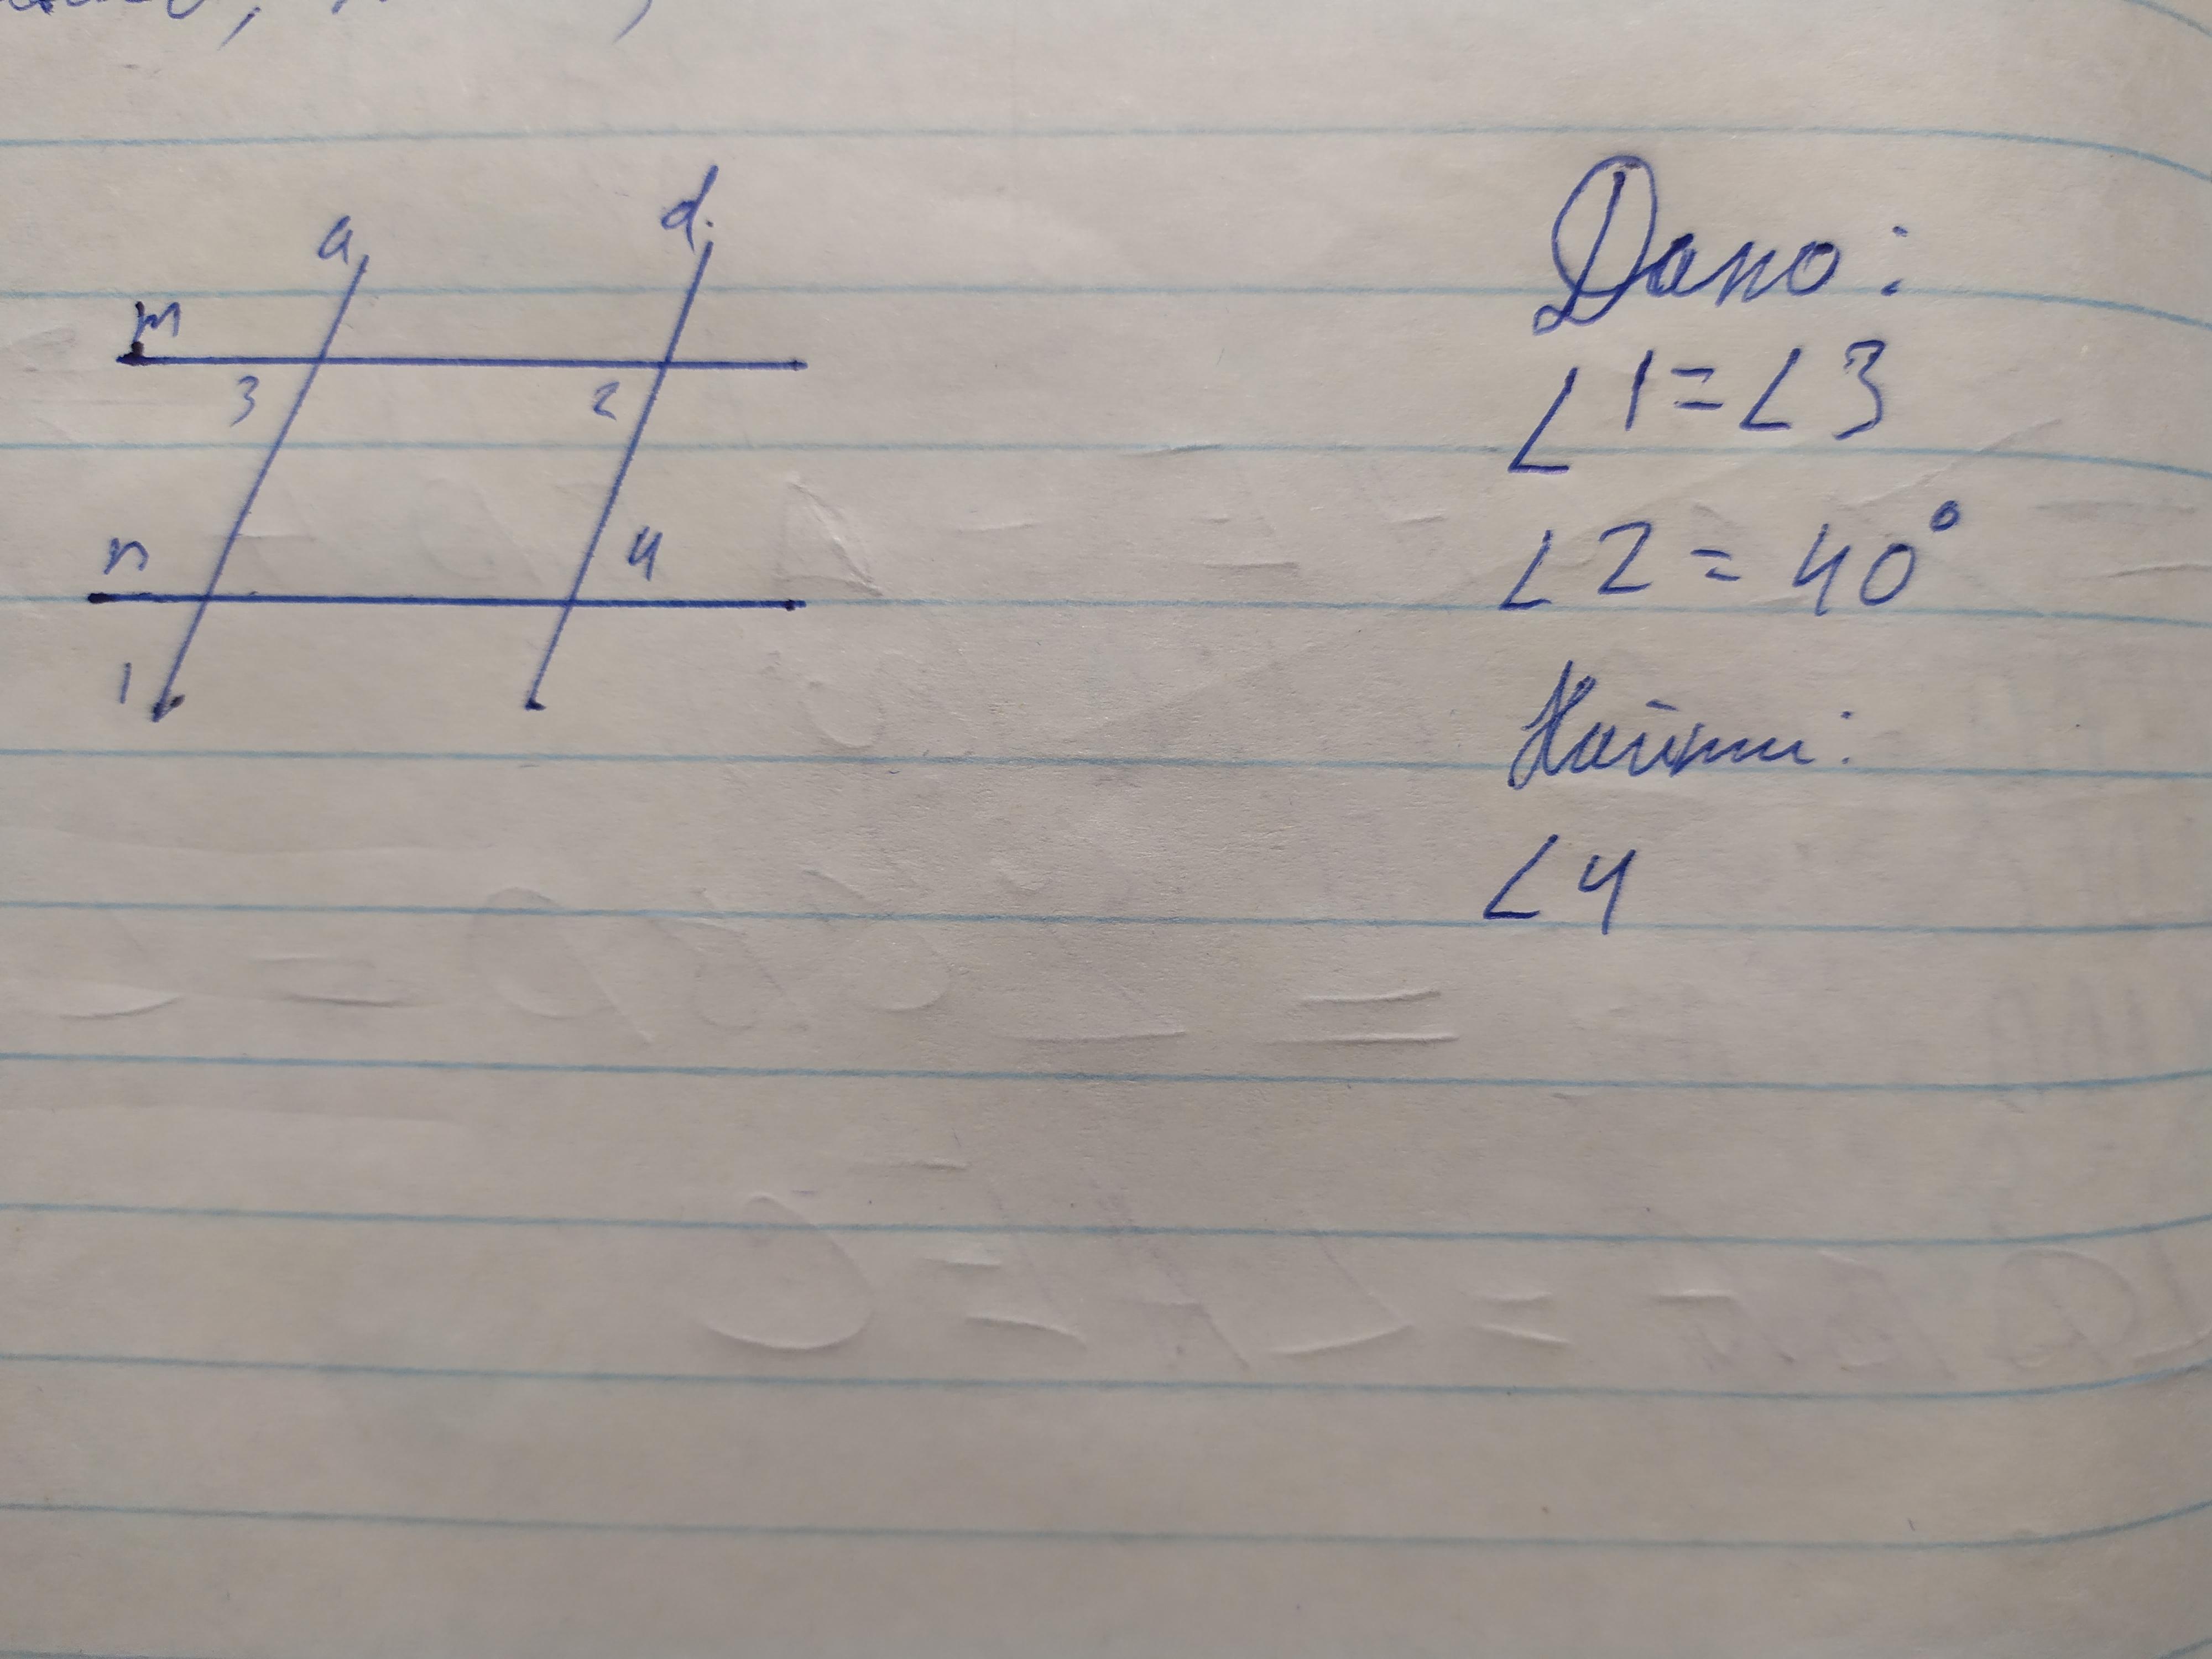 a
d
m
3
2
n
4
1
Дано:
∠1=∠3
∠2=40°
Найти:
∠4